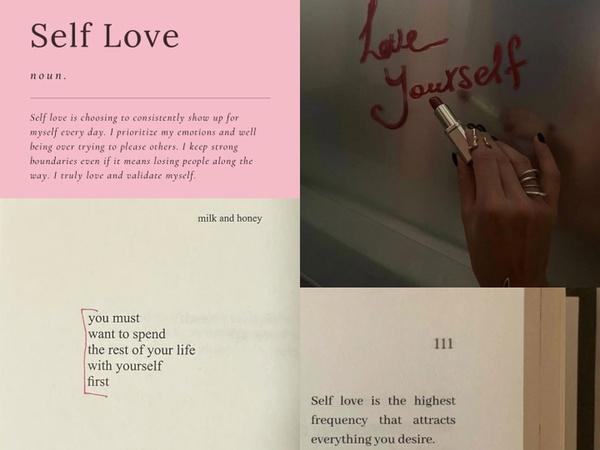 Self Love
noun.
Self love is choosing to consistently show up for
myself every day. I prioritize my emotions and well
being over trying to please others. I keep strong
boundaries even if it means losing people along the
way. I truly love and validate myself.
Love
Yourself
milk and honey
you must
want to spend
the rest of your life
with yourself
first
111
Self love is the highest
frequency that attracts
everything you desire.